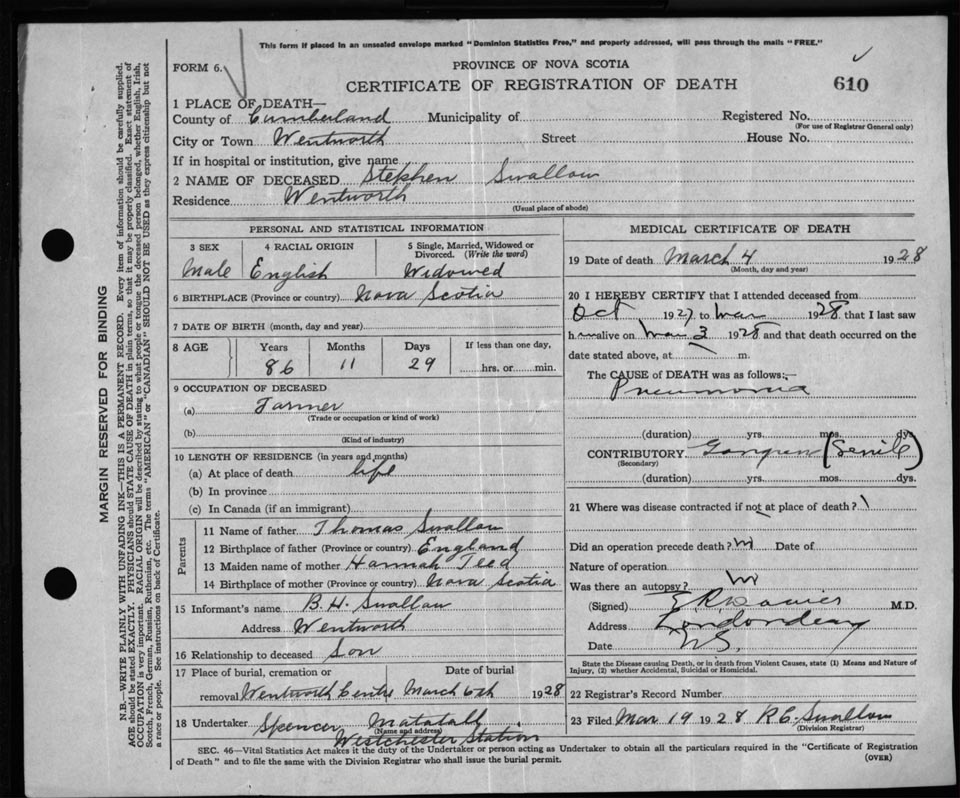 This form if placed in an unsealed envelope marked "Dominion Statistics Free," and properly addressed, will pass through the mails "FREE."
FORM 6.
PROVINCE OF NOVA SCOTIA
CERTIFICATE OF REGISTRATION OF DEATH
610
1 PLACE OF DEATH—
County of Cumberland Municipality of Registered No.
(For use of Registrar General only)
City or Town Wentworth Street House No.
If in hospital or institution, give name
2 NAME OF DECEASED Stephen Swallow
Residence Wentworth
(Usual place of abode)
PERSONAL AND STATISTICAL INFORMATION
3 SEX 4 RACIAL ORIGIN 5 Single, Married, Widowed or
Divorced. (Write the word)
Male English Widowed
6 BIRTHPLACE (Province or country) Nova Scotia
7 DATE OF BIRTH (month, day and year)
8 AGE Years Months Days If less than one day,
86 11 29 hrs. or min.
9 OCCUPATION OF DECEASED
(a) Farmer
(Trade or occupation or kind of work)
(b)
(Kind of industry)
10 LENGTH OF RESIDENCE (in years and months)
(a) At place of death life
(b) In province
(c) In Canada (if an immigrant)
Parents
11 Name of father Thomas Swallow
12 Birthplace of father (Province or country) England
13 Maiden name of mother Hannah Teed
14 Birthplace of mother (Province or country) Nova Scotia
15 Informant's name B. H. Swallow
Address Wentworth
16 Relationship to deceased Son
17 Place of burial, cremation or Date of burial
removal Wentworth Centre March 6th 1928
18 Undertaker Spencer Matatall
(Name and address)
Westchester Station
MEDICAL CERTIFICATE OF DEATH
19 Date of death March 4 1928
(Month, day and year)
20 I HEREBY CERTIFY that I attended deceased from
Oct 1927 to Mar 1928 that I last saw
h im alive on Mar 3 1928 and that death occurred on the
date stated above, at m.
The CAUSE of DEATH was as follows:—
Pneumonia
(duration) yrs. mos. dys.
CONTRIBUTORY Gangren (Senile)
(Secondary)
(duration) yrs. mos. dys.
21 Where was disease contracted if not at place of death?
Did an operation precede death? no Date of
Nature of operation
Was there an autopsy? no
(Signed) M.D.
Address Londonderry
N.S.
Date
State the Disease causing Death, or in death from Violent Causes, state (1) Means and Nature of
Injury, (2) whether Accidental, Suicidal or Homicidal.
22 Registrar's Record Number
23 Filed Mar 19 1928 R. C. Swallow
(Division Registrar)
SEC. 46—Vital Statistics Act makes it the duty of the Undertaker or person acting as Undertaker to obtain all the particulars required in the "Certificate of Registration
of Death" and to file the same with the Division Registrar who shall issue the burial permit.
(OVER)
MARGIN RESERVED FOR BINDING
N.B.—WRITE PLAINLY WITH UNFADING INK—THIS IS A PERMANENT RECORD. Every item of information should be carefully supplied.
AGE should be stated EXACTLY. PHYSICIANS should STATE CAUSE OF DEATH in plain terms, so that it may be properly classified. Exact statement of
OCCUPATION is very important. RACIAL ORIGIN will be described by stating to what people or tongue the deceased person belonged, whether English, Irish,
Scotch, French, German, Russian, Ruthenian, etc. The terms "AMERICAN" or "CANADIAN" SHOULD NOT BE USED as they express citizenship but not
a race or people. See instructions on back of Certificate.